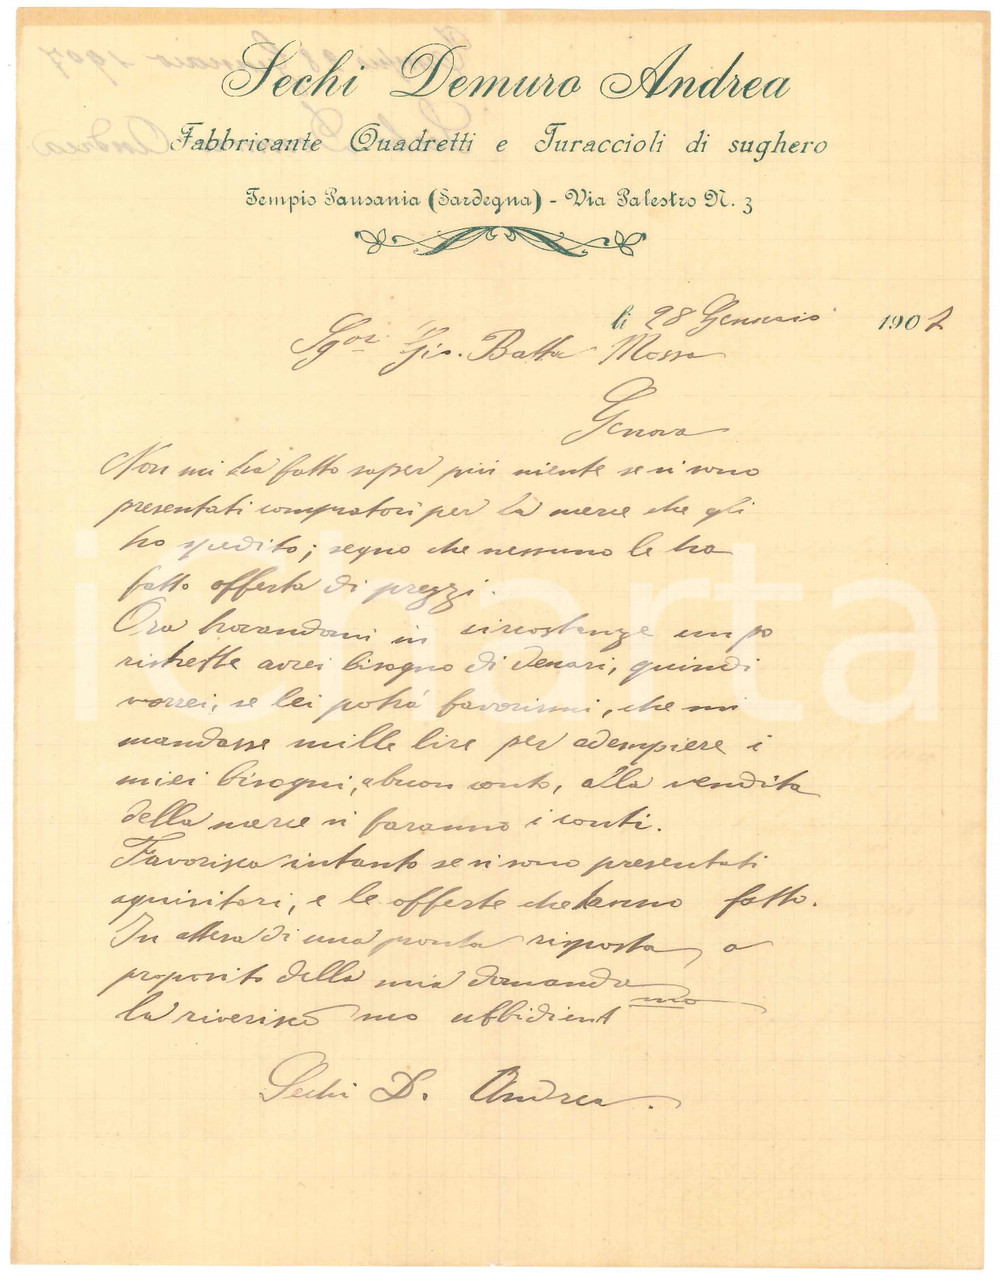 Sechi Demuro Andrea
Fabbricante Quadretti e Turaccioli di sughero
Tempio Pausania (Sardegna) - Via Palestro N. 3
li 28 Gennaio 1907
Sgor Gio. Batta Mossa
Genova
Non mi ha fatto saper più niente se vi sono
presentati compratori per la merce che gli
ho spedito; segno che nessuno le ha
fatto offerta di prezzi.
Ora trovandomi in circostanze un po
ristrette avrei bisogno di denari, quindi
vorrei, se lei potrà favorirmi, che mi
mandasse mille lire per adempiere i
miei bisogni, a buon conto, alla vendita
della merce si faranno i conti.
Favorisca intanto se vi sono presentati
aquisitori, e le offerte che hanno fatto.
In attesa di una pronta risposta a
proposito della mia domanda
la riverisco suo ubbidientmo
Sechi D. Andrea.
iCharta